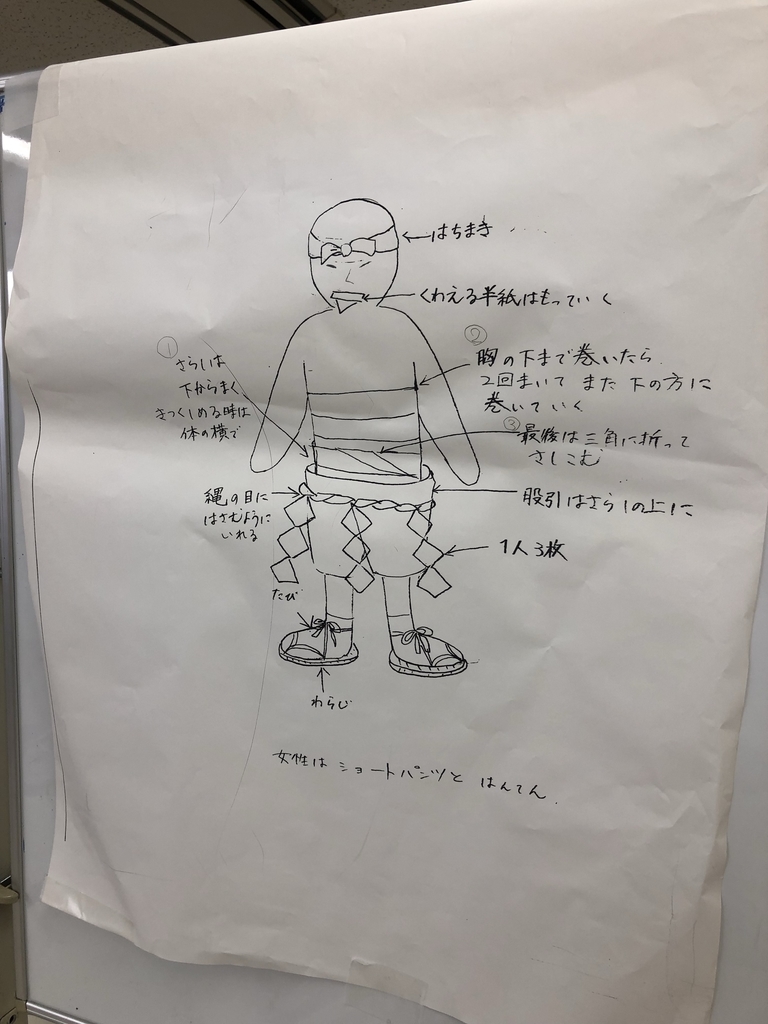 はちまき
くわえる半紙はもっていく
①
さらしは
下からまく
きつくしめる時は
体の横で
②
胸の下まで巻いたら
2回まいて また下の方に
巻いていく
③最後は三角に折って
さしこむ
縄の目に
はさむように
いれる
股引はさらしの上に
1人3枚
たび
わらじ
女性は ショートパンツと はんてん.